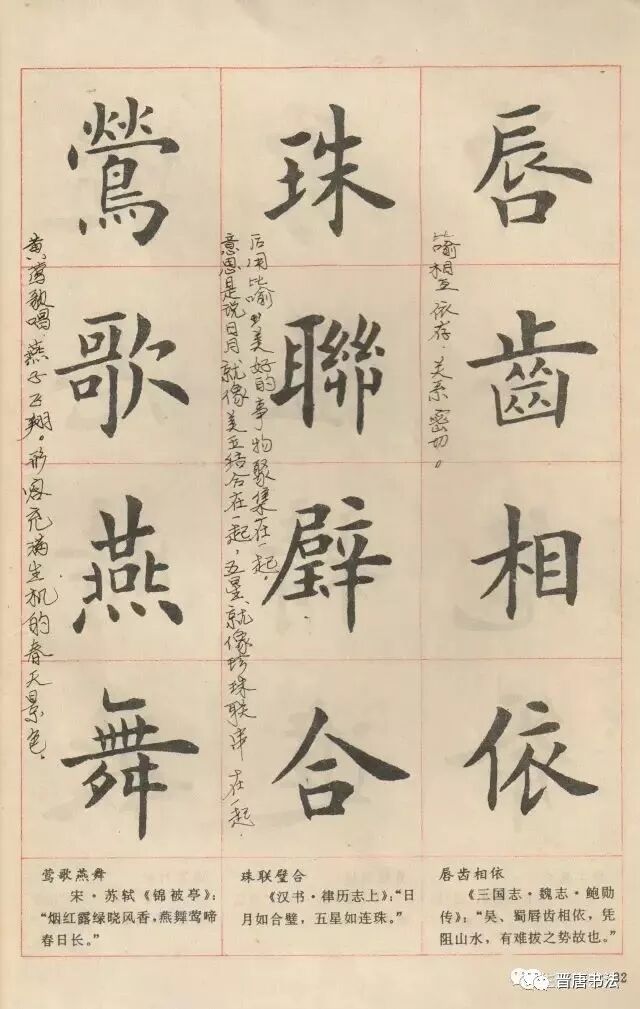 唇齒相依
喻相互依存，关系密切。
珠聯璧合
意思是说日月就像美玉结合在一起，五星就像珍珠联串在一起，
后用比喻美好的事物聚集在一起。
鶯歌燕舞
黄莺歌唱，燕子飞翔。形容充满生机的春天景色。
唇齿相依
《三国志·魏志·鲍勋
传》：“吴、蜀唇齿相依，凭
阻山水，有难拔之势故也。”
珠联璧合
《汉书·律历志上》：“日
月如合璧，五星如连珠。”
莺歌燕舞
宋·苏轼《锦被亭》：
“烟红露绿晓风香，燕舞莺啼
春日长。”
晋唐书法